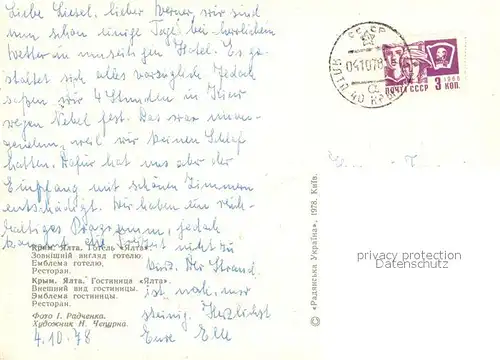 Liebe Liesel, lieber Werner, wir sind
nun schon einige Tage bei herrlichem
Wetter in unseitigen Hotel. Es ge-
staltet sich alles vorzüglich. Jedoch
saßen wir 4 Stunden in Kiew
wegen Nebel fest. Das war unan-
genehm, weil wir keinen Schlaf
hatten. Dafür hat uns aber der
Empfang mit schönen Zimmern
entschädigt. Wir haben ein reich-
haltiges Programm, jedoch
kommt die Freizeit nicht zu
kurz. Der Strand
ist nah, nur
steinig. Herzlichst
Eure Elli
4.10.78
Крым. Ялта. Готель «Ялта».
Зовнішній вигляд готелю.
Емблема готелю.
Ресторан.
Крым. Ялта. Гостиница «Ялта».
Внешний вид гостиницы.
Эмблема гостиницы.
Ресторан.
Фото І. Радченка.
Художник Н. Чепурна.
© «Радянська Україна», 1978. Київ.
СССР
041078
ЯЛТА 40
ПОЧТА СССР
1966
3 КОП.
privacy protection
Datenschutz